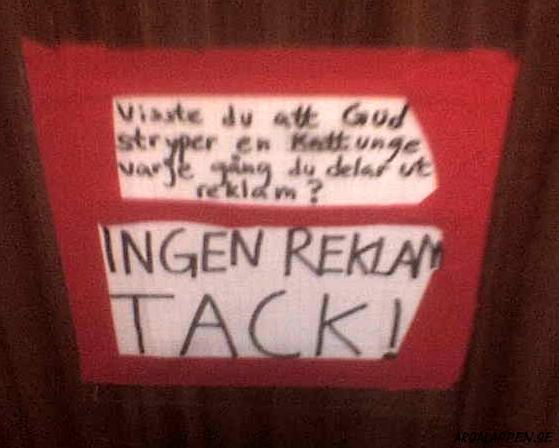 Visste du att Gud
stryper en Kattunge
varje gång du delar ut
reklam?
INGEN REKLAM
TACK!
ARGALAPPEN.SE